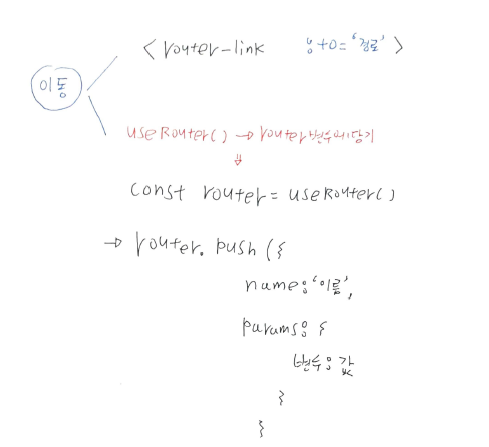 <router-link :to='경로'>
이동
useRouter() → router변수에담기
⇓
const router = useRouter()
→ router.push({
name:'이름',
params: {
변수: 값
}
}